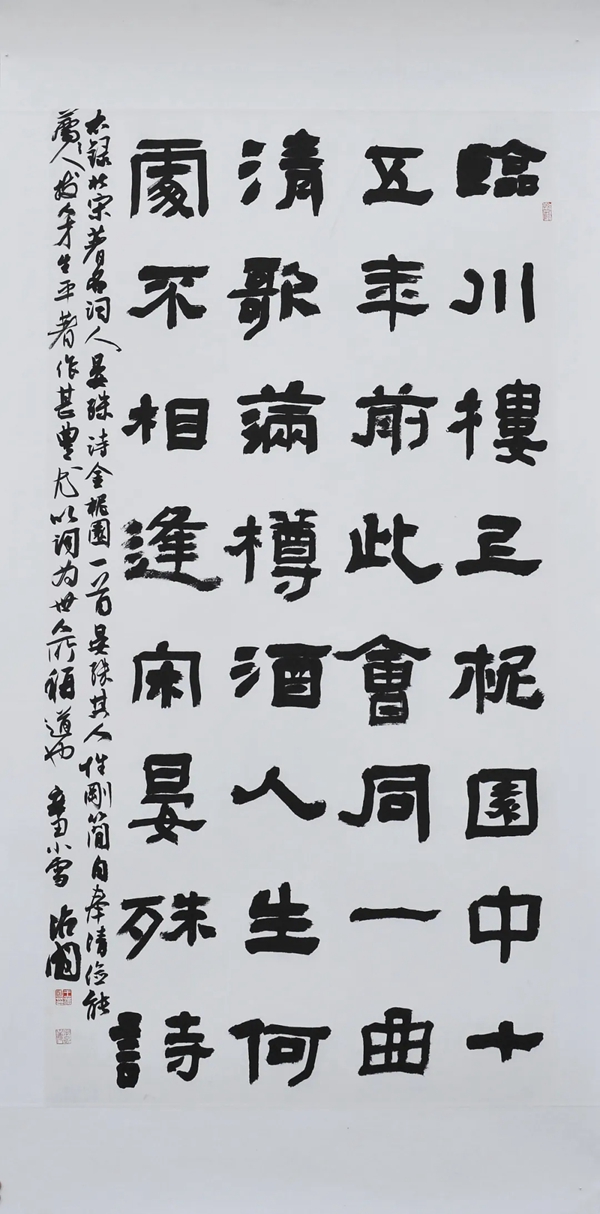 臨川樓上柅園中十
五年前此會同一曲
清歌滿樽酒人生何
處不相逢宋晏殊詩
右録北宋著名詞人晏殊詩金柅園一首晏殊其人性剛簡自奉清儉能
薦人拔才生平著作甚豐尤以詞為世人所稱道也 小雪 國